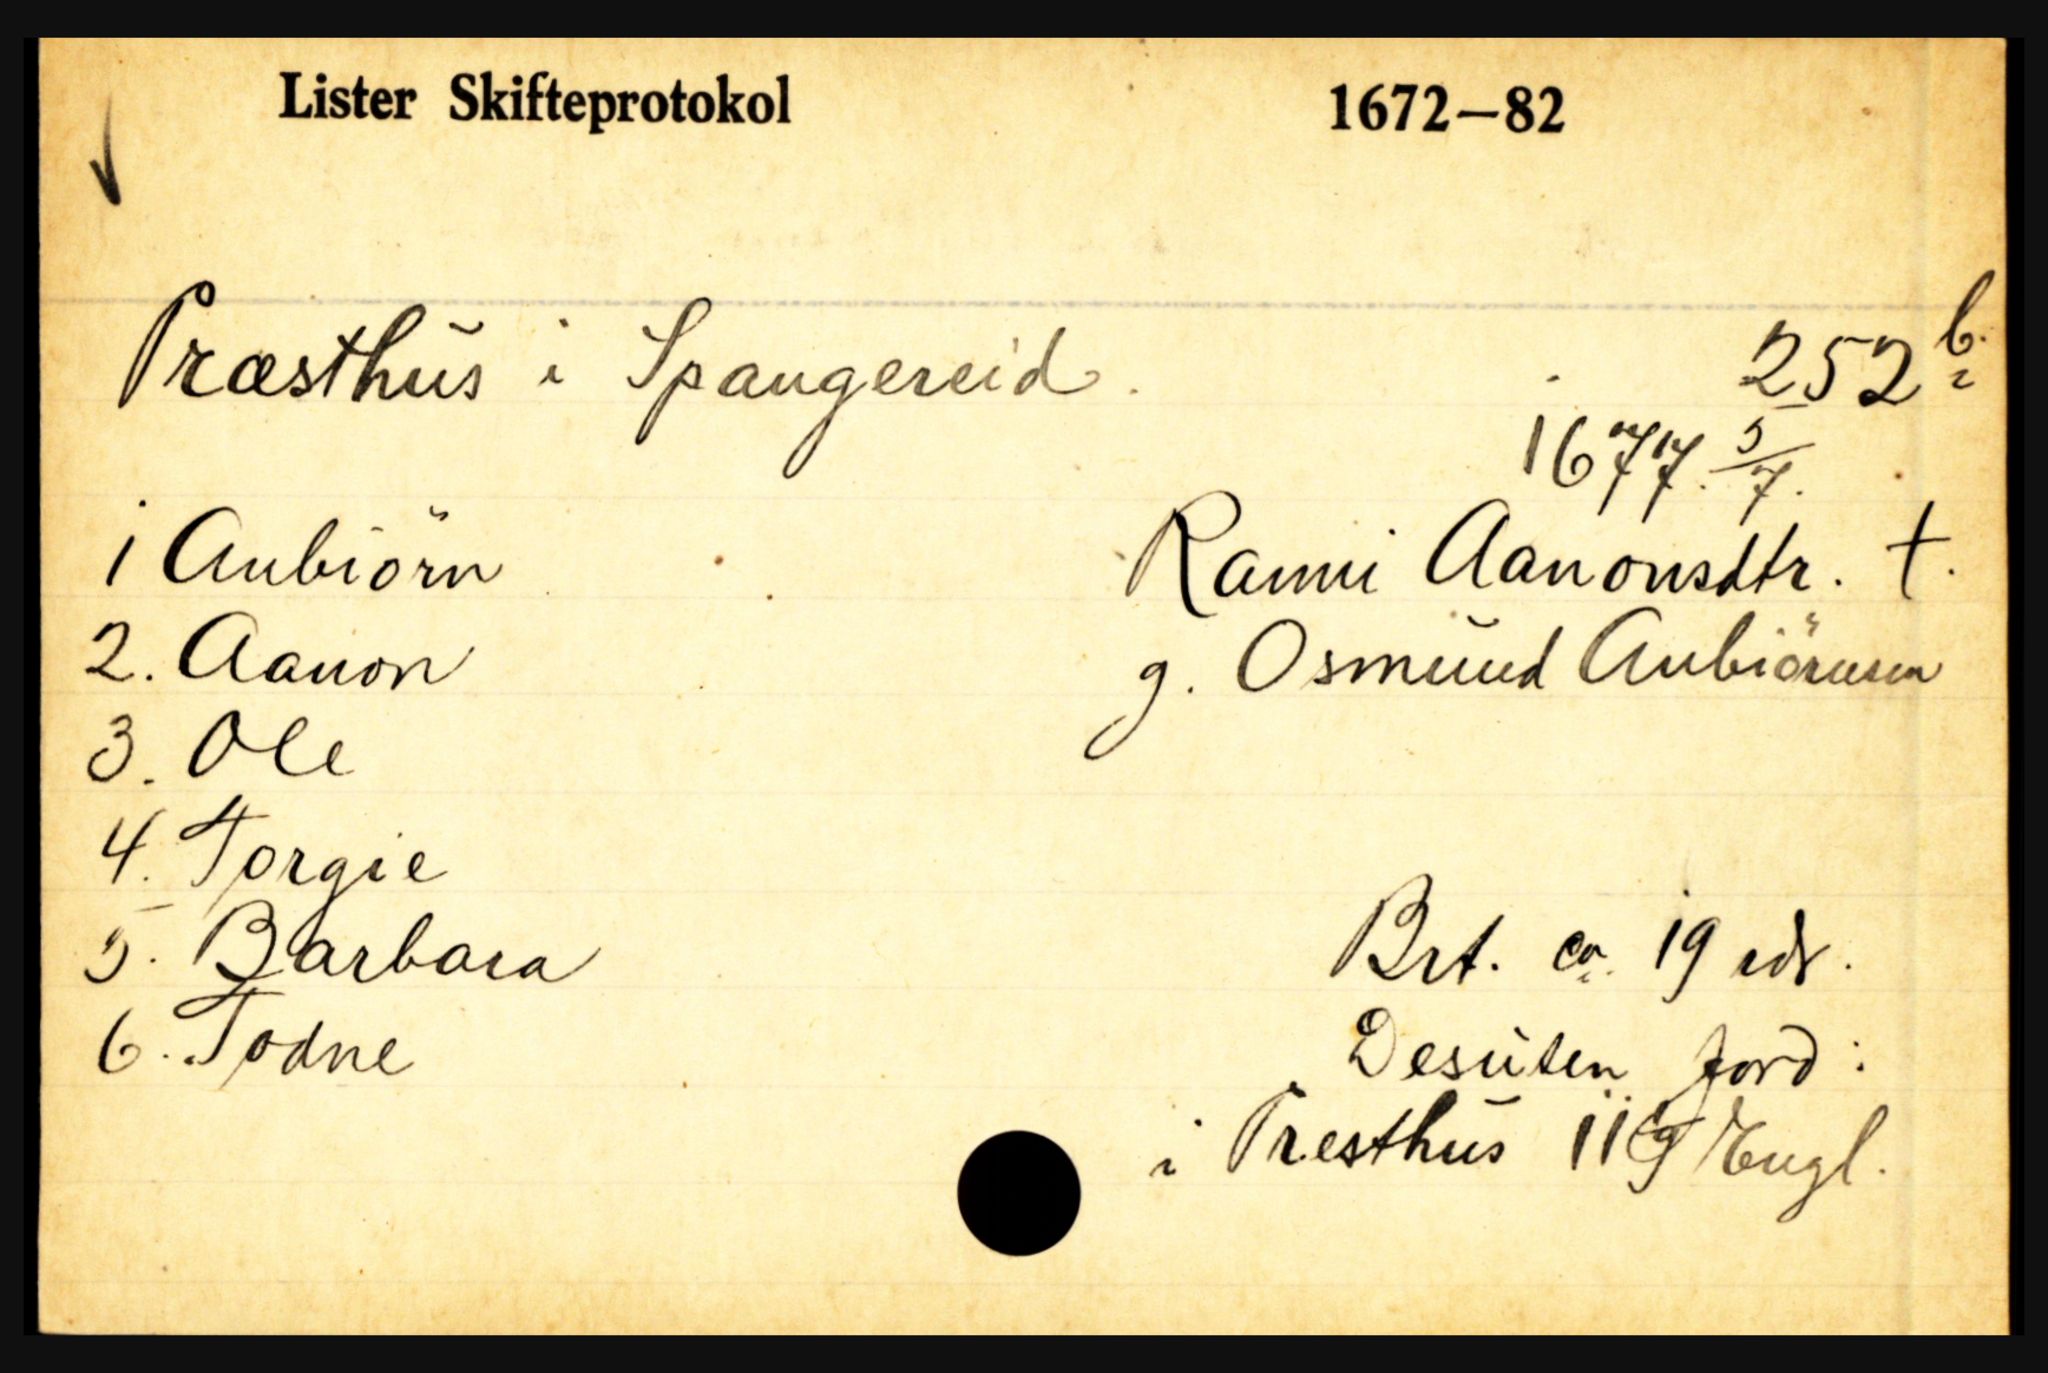 Lister Skifteprotokol 1672–82
Præsthus i Spangereid. 252 b.
1677. 5/7.
1 Anbiörn
Ranni Aanonsdtr. †.
2. Aanon
g. Osmund Anbiörnsen
3. Ole
4. Torgie
5. Barbara
Brt. ca. 19 rdr.
6. Todne
Desuten jord:
i Presthus Engl.